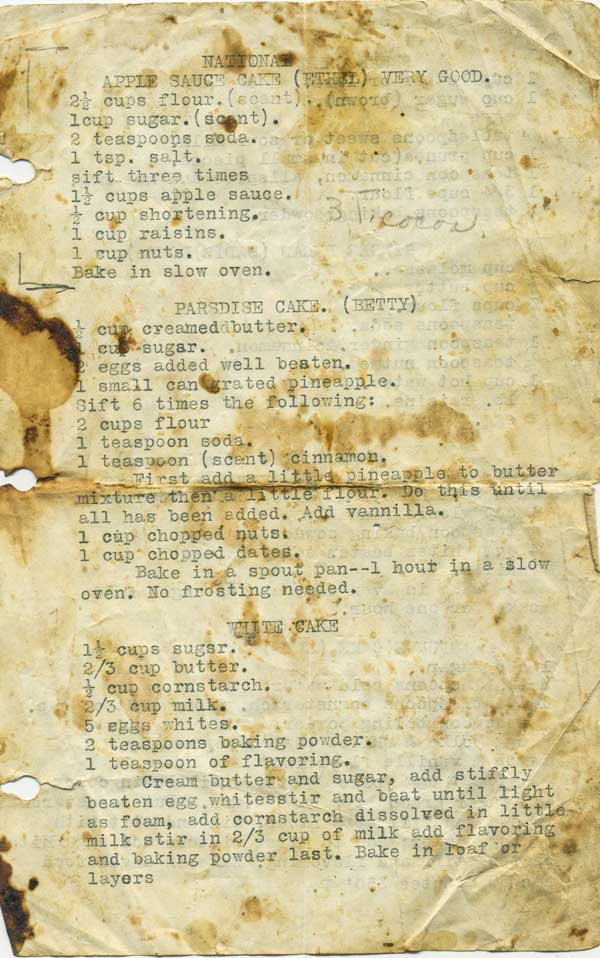 NATIONAL
APPLE SAUCE CAKE (ETHEL) VERY GOOD.
2½ cups flour.(scent).
1cup sugar.(scent).
2 teaspoons soda.
1 tsp. salt.
sift three times
1½ cups apple sauce.
½ cup shortening. 3 T. cocoa
1 cup raisins.
1 cup nuts.
Bake in slow oven.
PARSDISE CAKE. (BETTY)
½ cup creamedbutter.
1 cup sugar.
2 eggs added well beaten.
1 small can grated pineapple.
Sift 6 times the following:
2 cups flour
1 teaspoon soda.
1 teaspoon (scent) cinnamon.
First add a little pineapple to butter
mixture then a little flour. Do this until
all has been added. Add vannilla.
1 cup chopped nuts.
1 cup chopped dates.
Bake in a spout pan--1 hour in a slow
oven. No frosting needed.
WHITE CAKE
1½ cups sugsr.
2/3 cup butter.
½ cup cornstarch.
2/3 cup milk.
5 eggs whites.
2 teaspoons baking powder.
1 teaspoon of flavoring.
Cream butter and sugar, add stiffly
beaten egg whitesstir and beat until light
as foam, add cornstarch dissolved in little
milk stir in 2/3 cup of milk add flavoring
and baking powder last. Bake in loaf or
layers